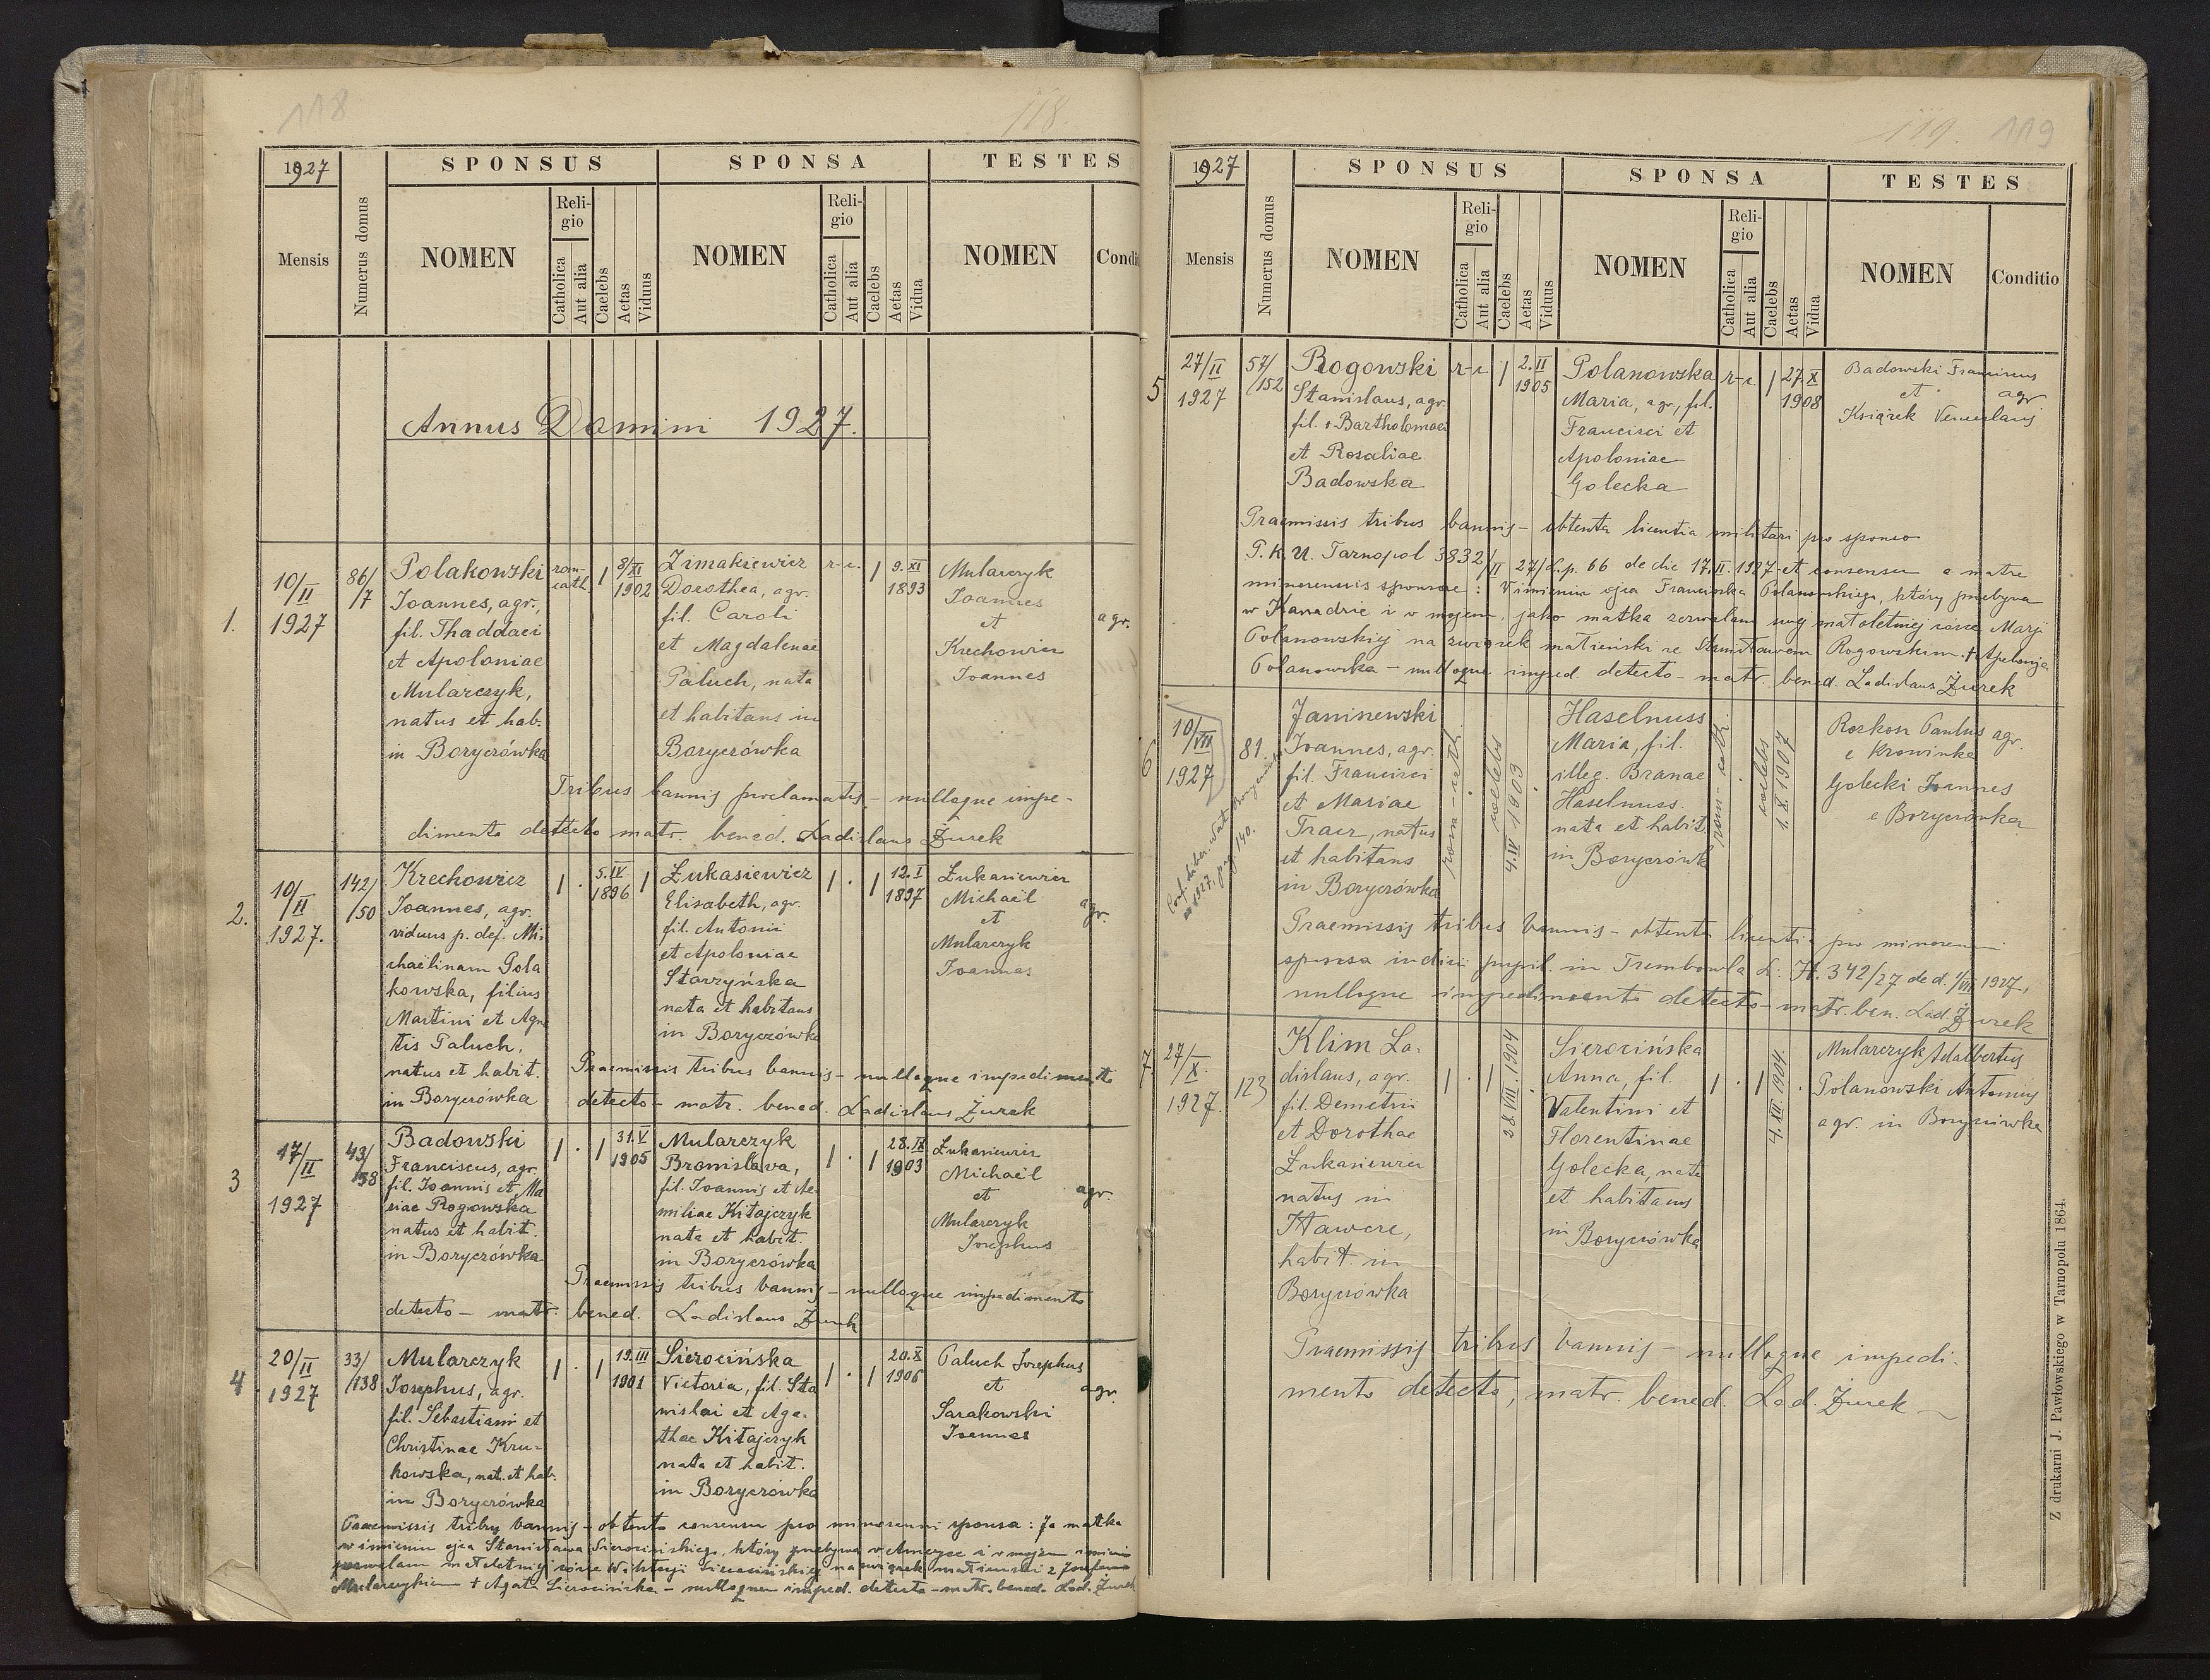 118
118.
1927
Mensis
Numerus domus
SPONSUS
NOMEN
Reli-
gio
Catholica
Aut alia
Caelebs
Aetas
Viduus
SPONSA
NOMEN
Reli-
gio
Catholica
Aut alia
Caelebs
Aetas
Vidua
TESTES
NOMEN
Condi
Annus Domini 1927.
1.
10/II
1927
86/
/7
Polakowski
Joannes, agr.,
fil. Thaddaei
et Apoloniae
Mularczyk,
natus et hab.
in Borycrówka
rom-
cath.
1
8/XI
1902
Zimakiewicz
Dorothea, agr.
fil. Caroli
et Magdalenae
Paluch, nata
et habitans in
Borycrówka
r-c.
1
9.XI
1893
Mularczyk
Joannes
et
Krechowicz
Joannes
agr.
Tribus bannis proclamatis - nulloque impe-
dimento detecto matr. bened. Ladislaus Żurek
2.
10/
II
1927.
142/
/50
Krechowicz
Joannes, agr.
viduus p. def. Mi-
chaëlinam Pola
kowska, filius
Martini et Agne
tis Paluch,
natus et habit.
in Borycrówka
1 .
5.IV
1896
1
Łukasiewicz
Elisabeth, agr.
fil. Antonii
et Apoloniae
Starzyńska
nata et habitans
in Borycrówka
1 . 1
12.I
1897
Łukasiewicz
Michaël
et
Mularczyk
Joannes
agr.
Praemissis tribus bannis - nulloque impedimento
detecto - matr. bened. Ladislaus Żurek
3
17/II
1927
43/
158
Badowski
Franciscus, agr.
fil. Joannis et Ma
riae Rogowska
natus et habit.
in Borycrówka
1 . 1
31.V
1905
Mularczyk
Bronislava,
fil. Joannis et Ae-
miliae Kitajczyk
nata et habit.
in Borycrówka
1 . 1
28.IX
1903
Łukasiewicz
Michaël
et
Mularczyk
Josephus
agr.
Praemissis tribus bannis - nulloque impedimento
detecto - matr. bened. Ladislaus Żurek
4
20/II
1927
33/
/138
Mularczyk
Josephus, agr.
fil. Sebastiani et
Christinae Kru-
kowska, nat. et hab.
in Borycrówka
1 . 1
19.III
1901
Sierocińska
Victoria, fil. Sta
nislai et Aga-
thae Kitajczyk
nata et habit.
in Borycrówka
1 . 1
20.X
1906
Paluch Josephus
et
Sarakowski
Joannes
agr.
Praemissis tribus bannis - obtento consensu pro minorenni sponsa: Ja matka
w imieniu ojca Stanisława Sierocińskiego, który przebywa w Ameryce i w mojem imieniu
zezwalam małoletniej córce Wiktorji Sierocińskiej na związek małżeński z Józefem
Mularczykiem + Agata Sierocińska - nulloque imped. detecto - matr. bened. Lad. Żurek
119. 119
1927
Mensis
Numerus domus
SPONSUS
NOMEN
Reli-
gio
Catholica
Aut alia
Caelebs
Aetas
Viduus
SPONSA
NOMEN
Reli-
gio
Catholica
Aut alia
Caelebs
Aetas
Vidua
TESTES
NOMEN
Conditio
5
27/II
1927
57/
/152
Rogowski
Stanislaus, agr.
fil. + Bartholomaei
et Rosaliae
Badowska
r-c 1
2.II
1905
Polanowska
Maria, agr., fil.
Francisci et
Apoloniae
Golecka
r-c. 1
27.X
1908
Badowski Franciscus
et
Książek Venceslaus
agr
Praemissis tribus bannis - obtenta licentia militari pro sponso
P.K.U. Tarnopol 3832/II 27/L.p. 66 de die 17.II.1927 et consensu a matre
minorennis sponsae: W imieniu ojca Franciszka Polanowskiego, który przebywa
w Kanadzie i w mojem, jako matka zezwalam mej małoletniej córce Marji
Polanowskiej na związek małżeński ze Stanisławem Rogowskim. + Apolonja
Polanowska - nulloque imped. detecto - matr. bened. Ladislaus Żurek
6
10/VII
1927
81.
Janinewski
Joannes, agr.
fil. Francisci
et Mariae
Tracz, natus
et habitans
in Borycrówka
rom-cath.
caelebs
4.IV 1903
Haselnuss
Maria, fil.
illeg. Branae
Haselnuss.
nata et habit.
in Borycrówk
rom-cath.
caelebs
1.X.1907
Roskosz Paulus agr.
e Krowinka
Golecki Joannes
e Borycrówka
Praemissis tribus bannis - obtenta licentia pro minorenni
sponsa iudicii pupil. in Trembowla L: 342/27 de d. 1/VII 1927,
nulloque impedimento detecto - matr. ben. Lad. Żurek
7
27/
X.
1927.
123
Klim La-
dislaus, agr.
fil. Demetrii
et Dorothae
Łukasiewicz
natus in
Iławcze,
habit. in
Borycrówka
1 . 1
28.VIII.1904
Sierocińska
Anna, fil.
Valentini et
Florentinae
Golecka, nata
et habitans
in Borycrówka
1 . 1
4.III 1904
Mularczyk Adalbertus
Polanowski Antonius
agr. in Borycrówka
Praemissis tribus bannis - nulloque impedi-
mento detecto, matr. bened. Lad. Żurek
Z drukarni J. Pawłowskiego w Tarnopolu 1864.